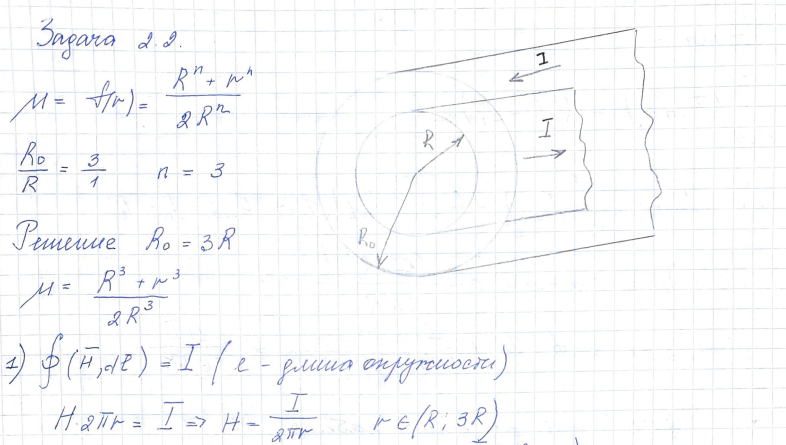 Задача 2.2.
μ = f(r) = (R^n + r^n) / (2R^n)
R₀/R = 3/1   n = 3
I
I
R
R₀
Решение R₀ = 3R
μ = (R³ + r³) / (2R³)
1) ∮(H̄, dl̄) = I (l - длина окружности)
H·2πr = I => H = I/(2πr)   r ∈ (R; 3R)